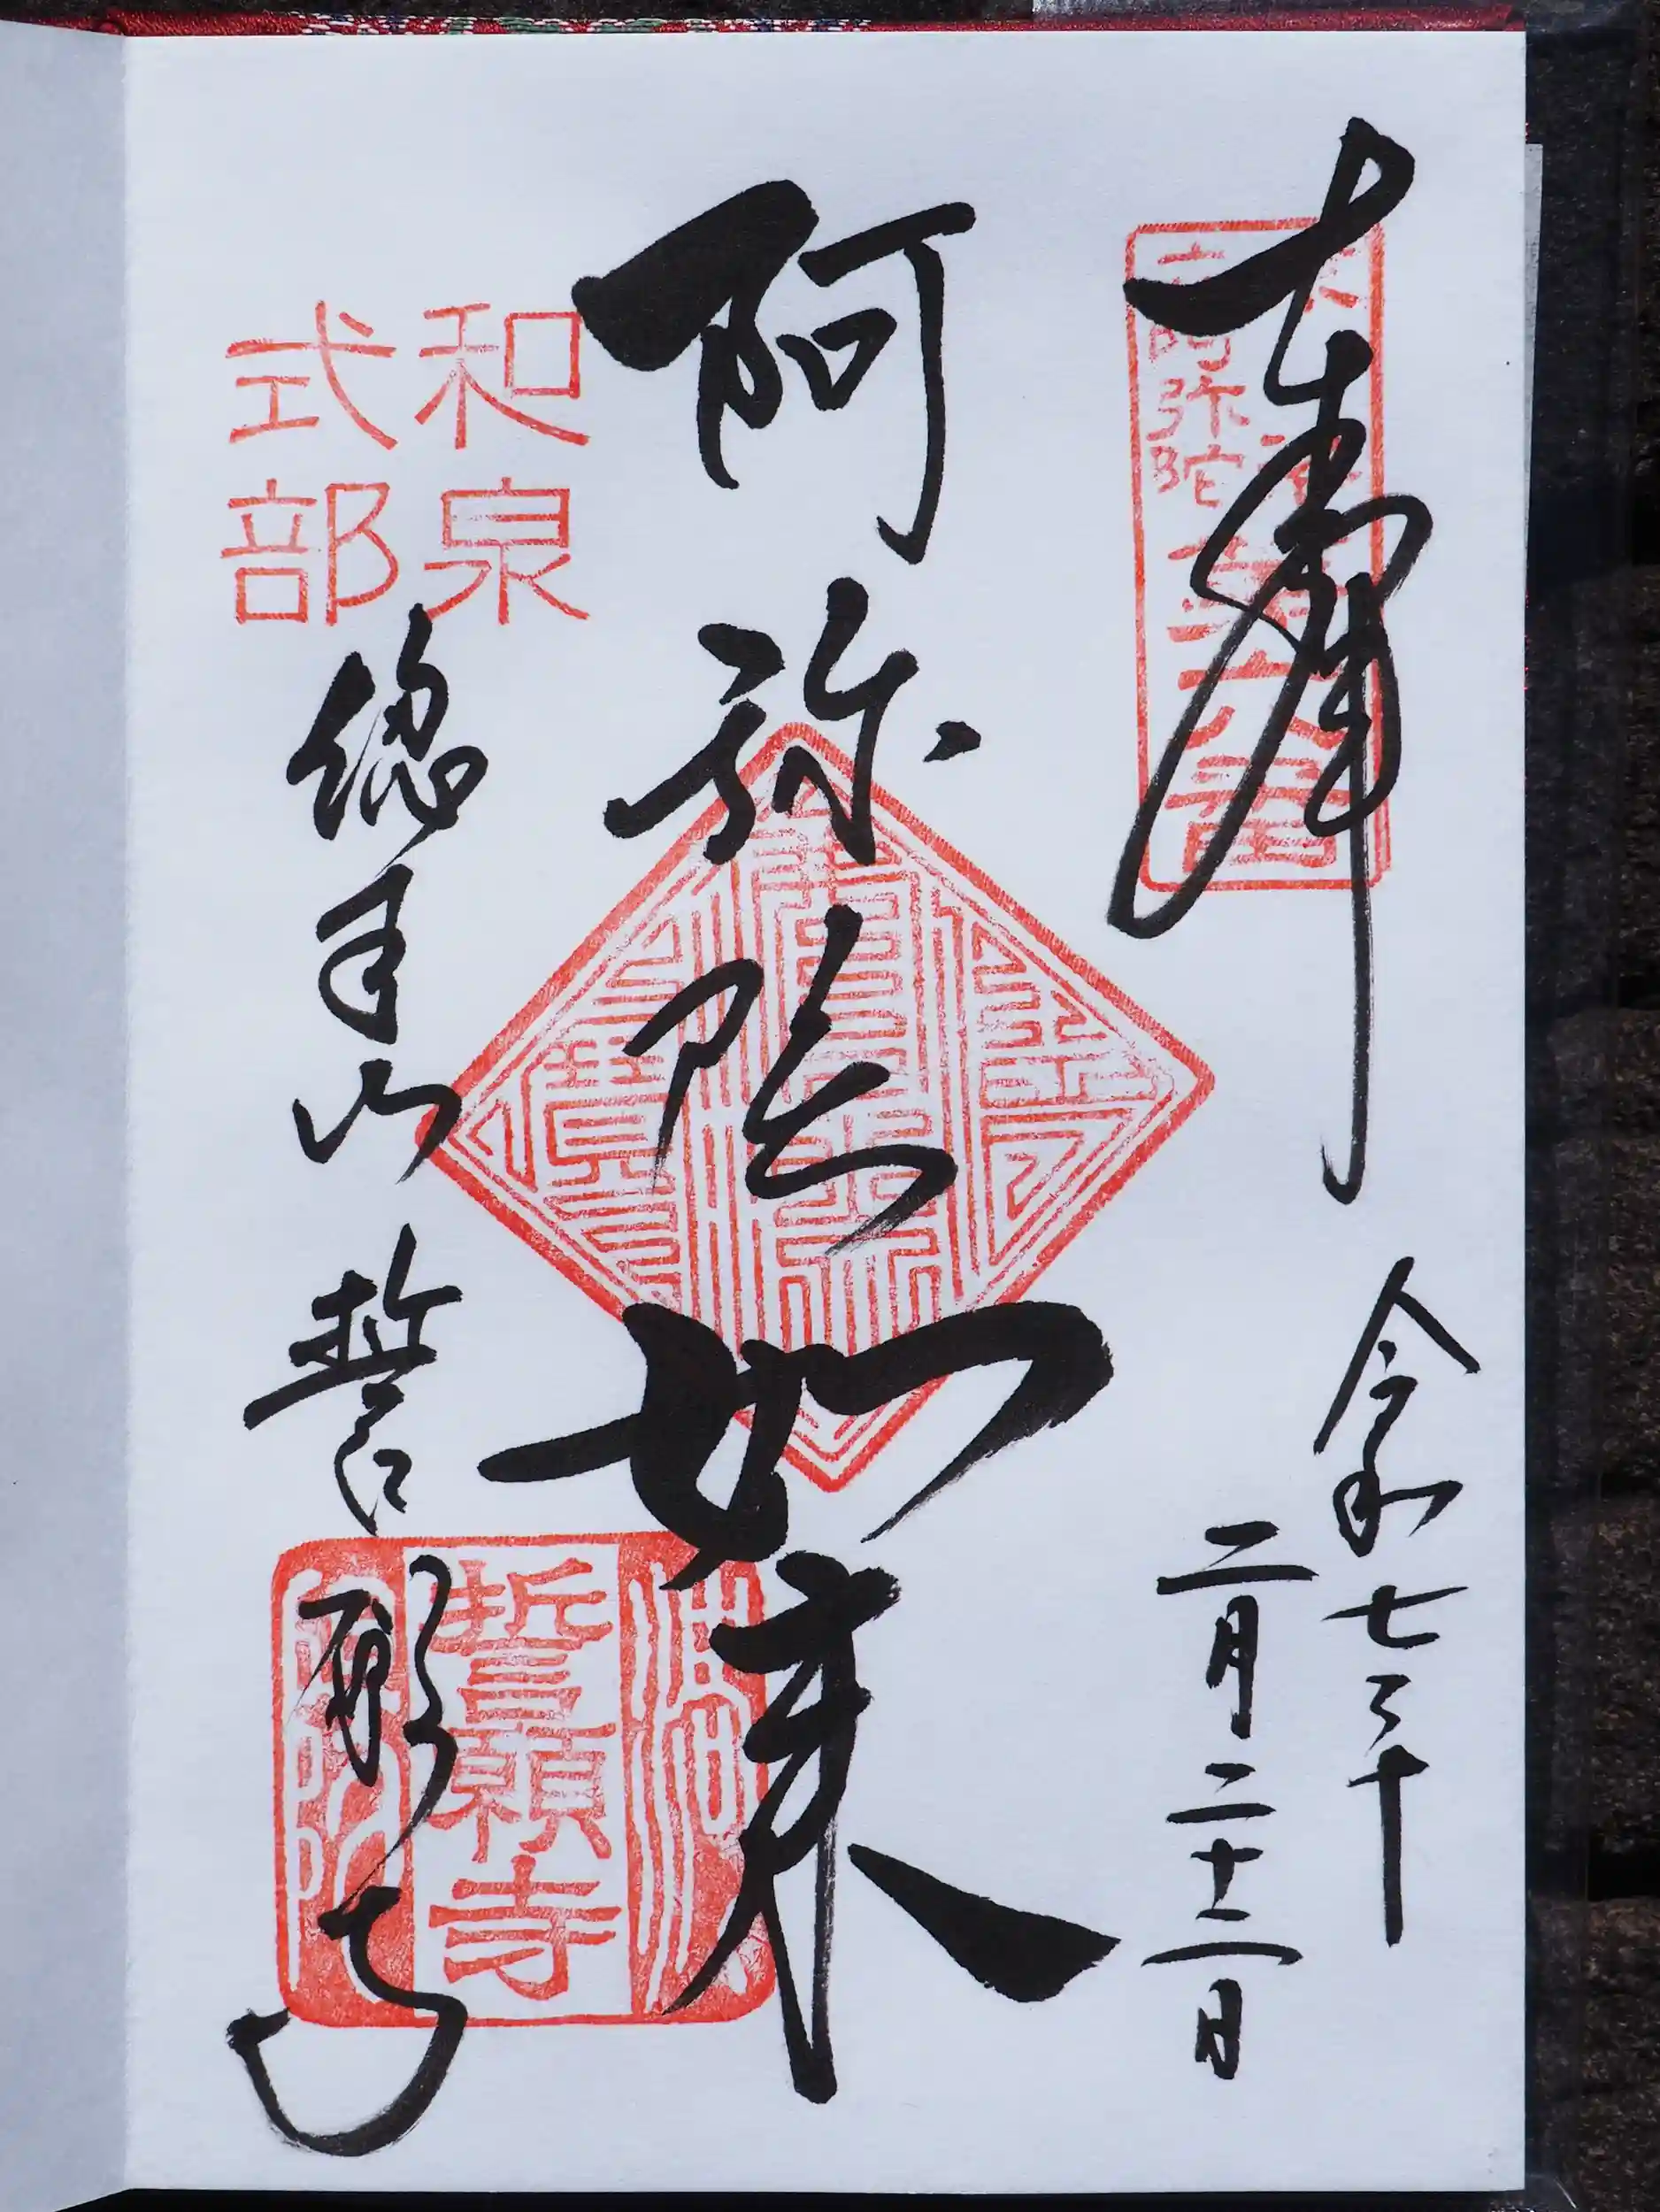 奉拝
令和七年
二月二十二日
阿弥陀如来
和泉
式部
総本山 誓願寺
誓願寺